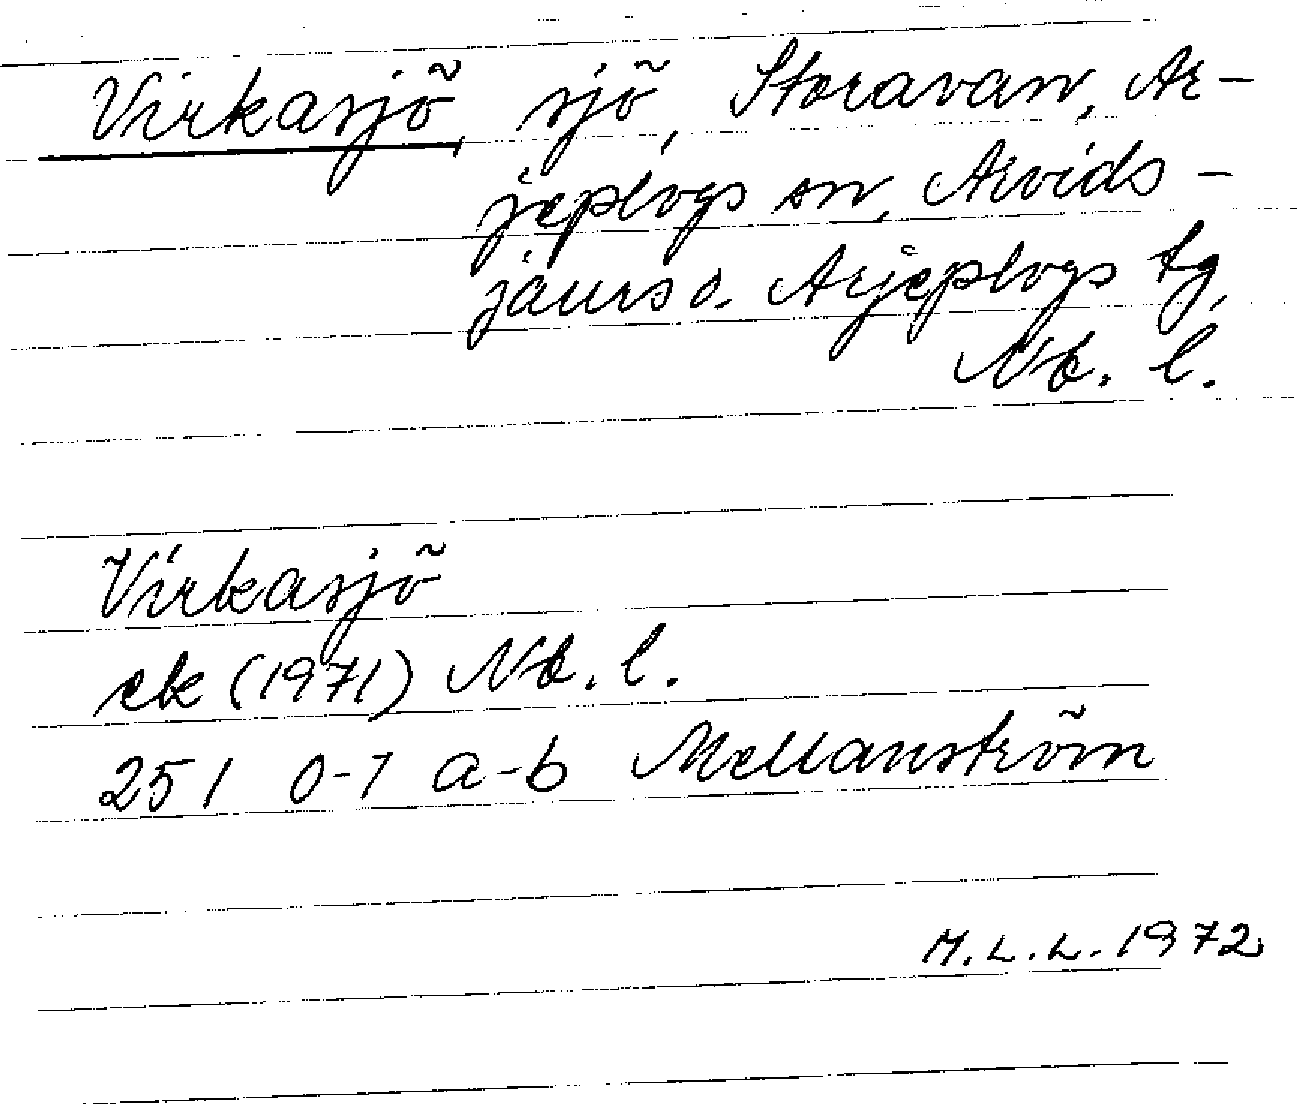 Virkasjö, sjö, Storavan, Ar-
jeplogs sn, Arvids-
jaurs o. Arjeplogs tg,
Nb. l.
Virkasjö
ek (1971) Nb. l.
251 0-1 a-b Mellanström
M.L.L. 1972